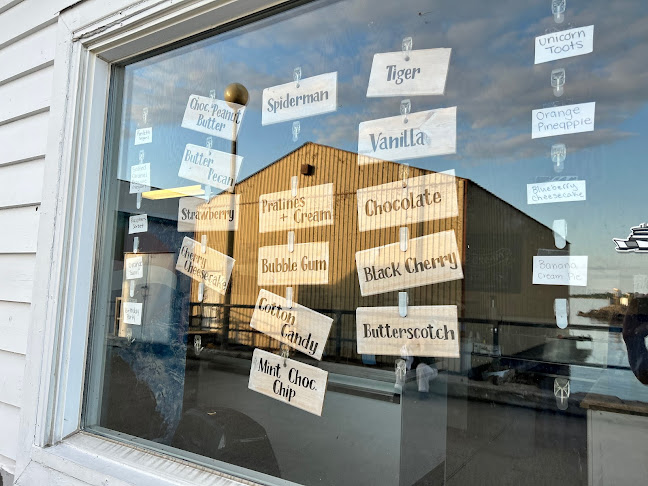 Choc. Peanut
Butter
Butter
Pecan
Strawberry
Cherry
Cheesecake
Spiderman
Pralines
+ Cream
Bubble Gum
Cotton
Candy
Mint Choc.
Chip
Tiger
Vanilla
Chocolate
Black Cherry
Butterscotch
Unicorn
Toots
Orange
Pineapple
Blueberry
Cheesecake
Banana
Cream Pie